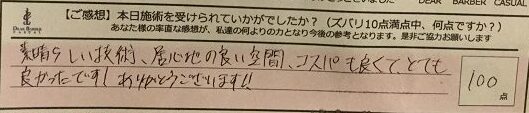 DEAR BARBER CASUAL
【ご感想】本日施術を受けられていかがでしたか？（ズバリ10点満点中、何点ですか？）
あなた様の率直な感想が、私達の何よりの力となり今後の参考となります。是非ご協力お願いします
素晴らしい技術、居心地の良い空間、コスパも良くて、とても
良かったです！ありがとうございます!!
100
点